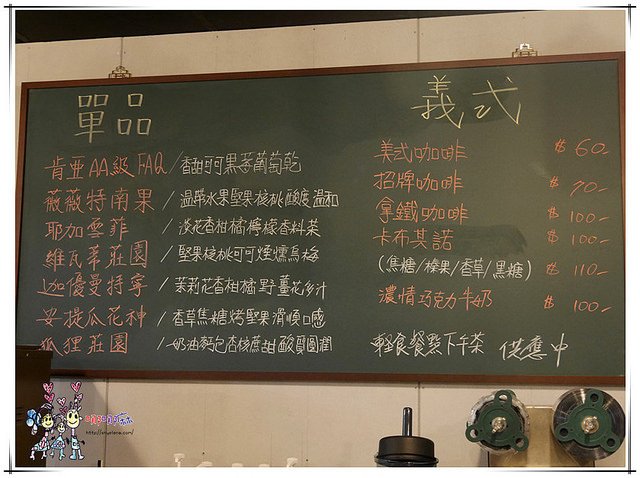 單品
肯亞AA級FAQ/香甜可可黑棗葡萄乾
薇薇特南果/溫帶水果堅果核桃酸度溫和
耶加雪菲/淡花香柑橘檸檬香料菜
維瓦萊莊園/堅果核桃可可煙燻烏梅
迦優曼特寧/茉莉花香柑橘野薑花多汁
安提瓜花神/香草焦糖烤堅果滑順口感
狐狸莊園/奶油麵包杏核蔗甜酸質圓潤
義式
美式咖啡 $ 60-
招牌咖啡 $ 70-
拿鐵咖啡 $ 100-
卡布其諾 $ 100-
(焦糖/榛果/香草/黑糖) $ 110-
濃情巧克力牛奶 $ 100-
輕食餐點下午茶 供應中